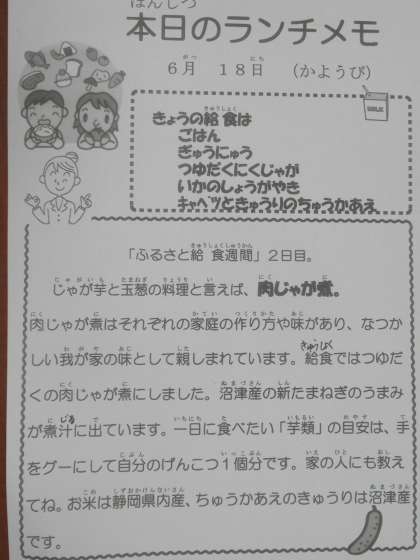 本日のランチメモ
６月　１８日　（かようび）
MILK
きょうの給食は
ごはん
ぎゅうにゅう
つゆだくにくじゃが
いかのしょうがやき
キャベツときゅうりのちゅうかあえ
「ふるさと給食週間」２日目。
じゃが芋と玉葱の料理と言えば、肉じゃが煮。
肉じゃが煮はそれぞれの家庭の作り方や味があり、なつか
しい我が家の味として親しまれています。給食ではつゆだ
くの肉じゃが煮にしました。沼津産の新たまねぎのうまみ
が煮汁に出ています。一日に食べたい「芋類」の目安は、手
をグーにして自分のげんこつ１個分です。家の人にも教え
てね。お米は静岡県内産、ちゅうかあえのきゅうりは沼津産
です。